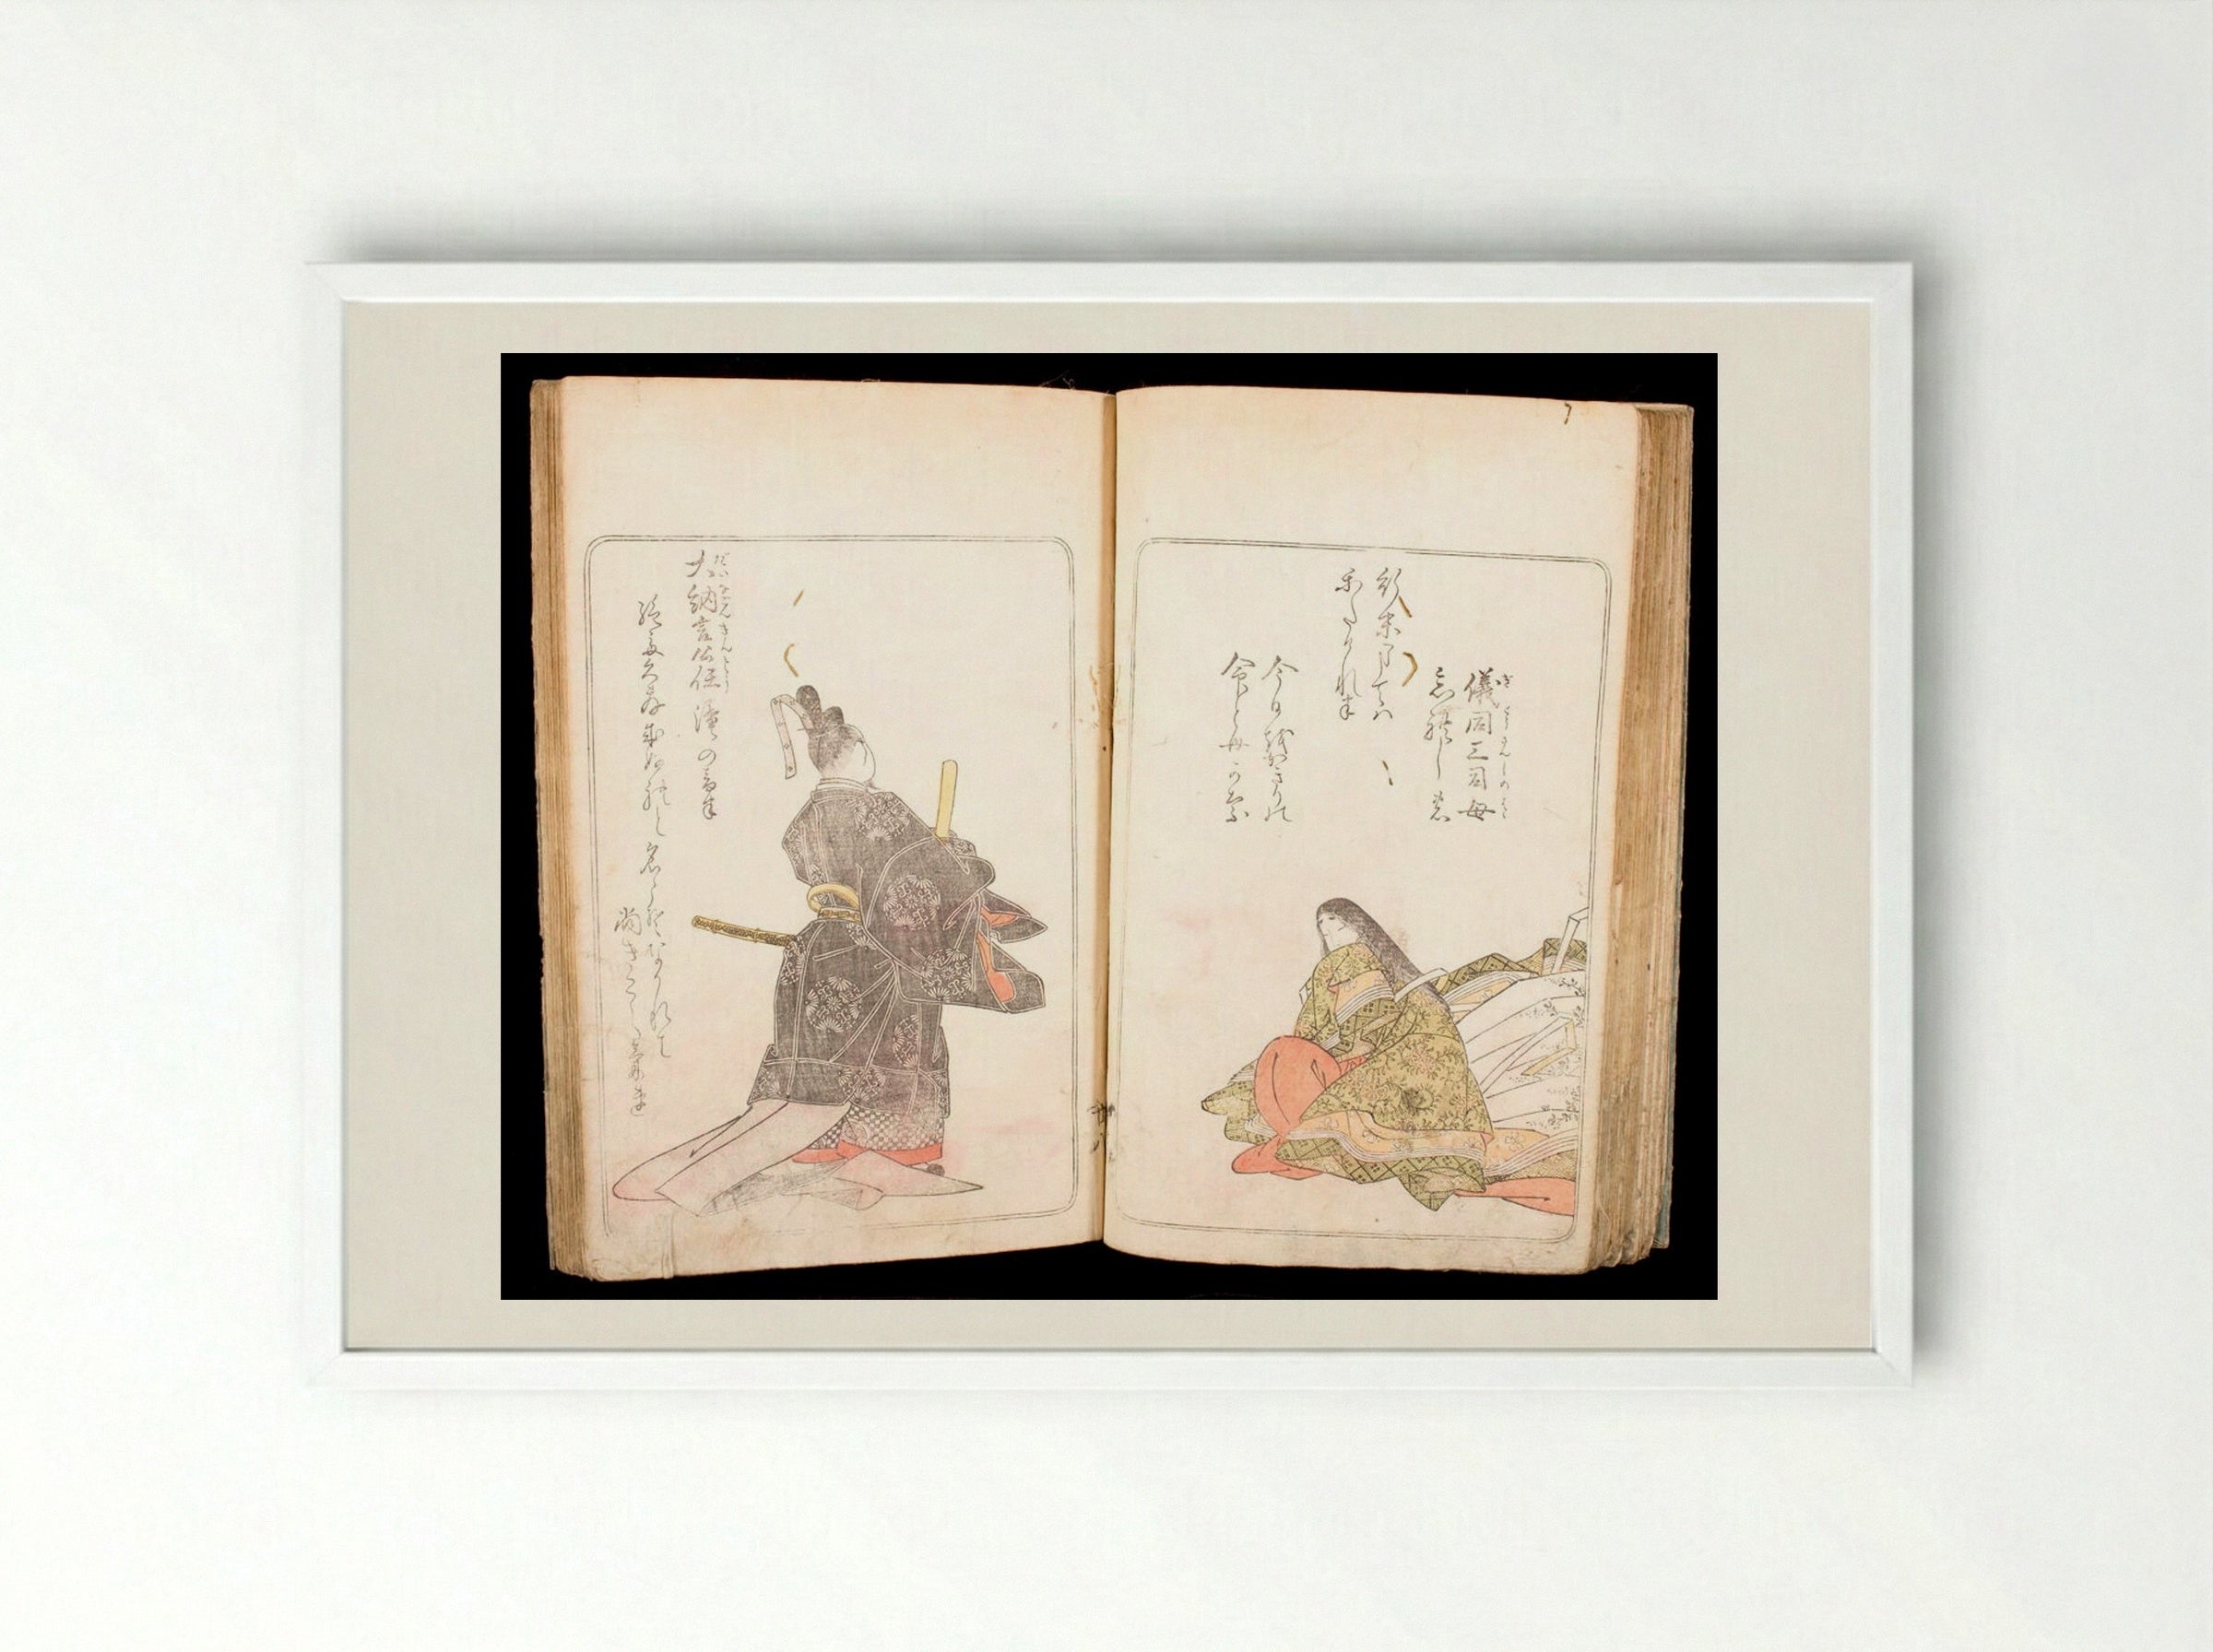 儀同三司母
ぎどうさんしのはゝ
忘れしの
行末まてハ
かたけれは
今日をかきりの
命ともかな
大納言公任 瀧の音は
だいなごんきんとう
絶て久しく成ぬれと名こそなかれて
尚きこえけれ